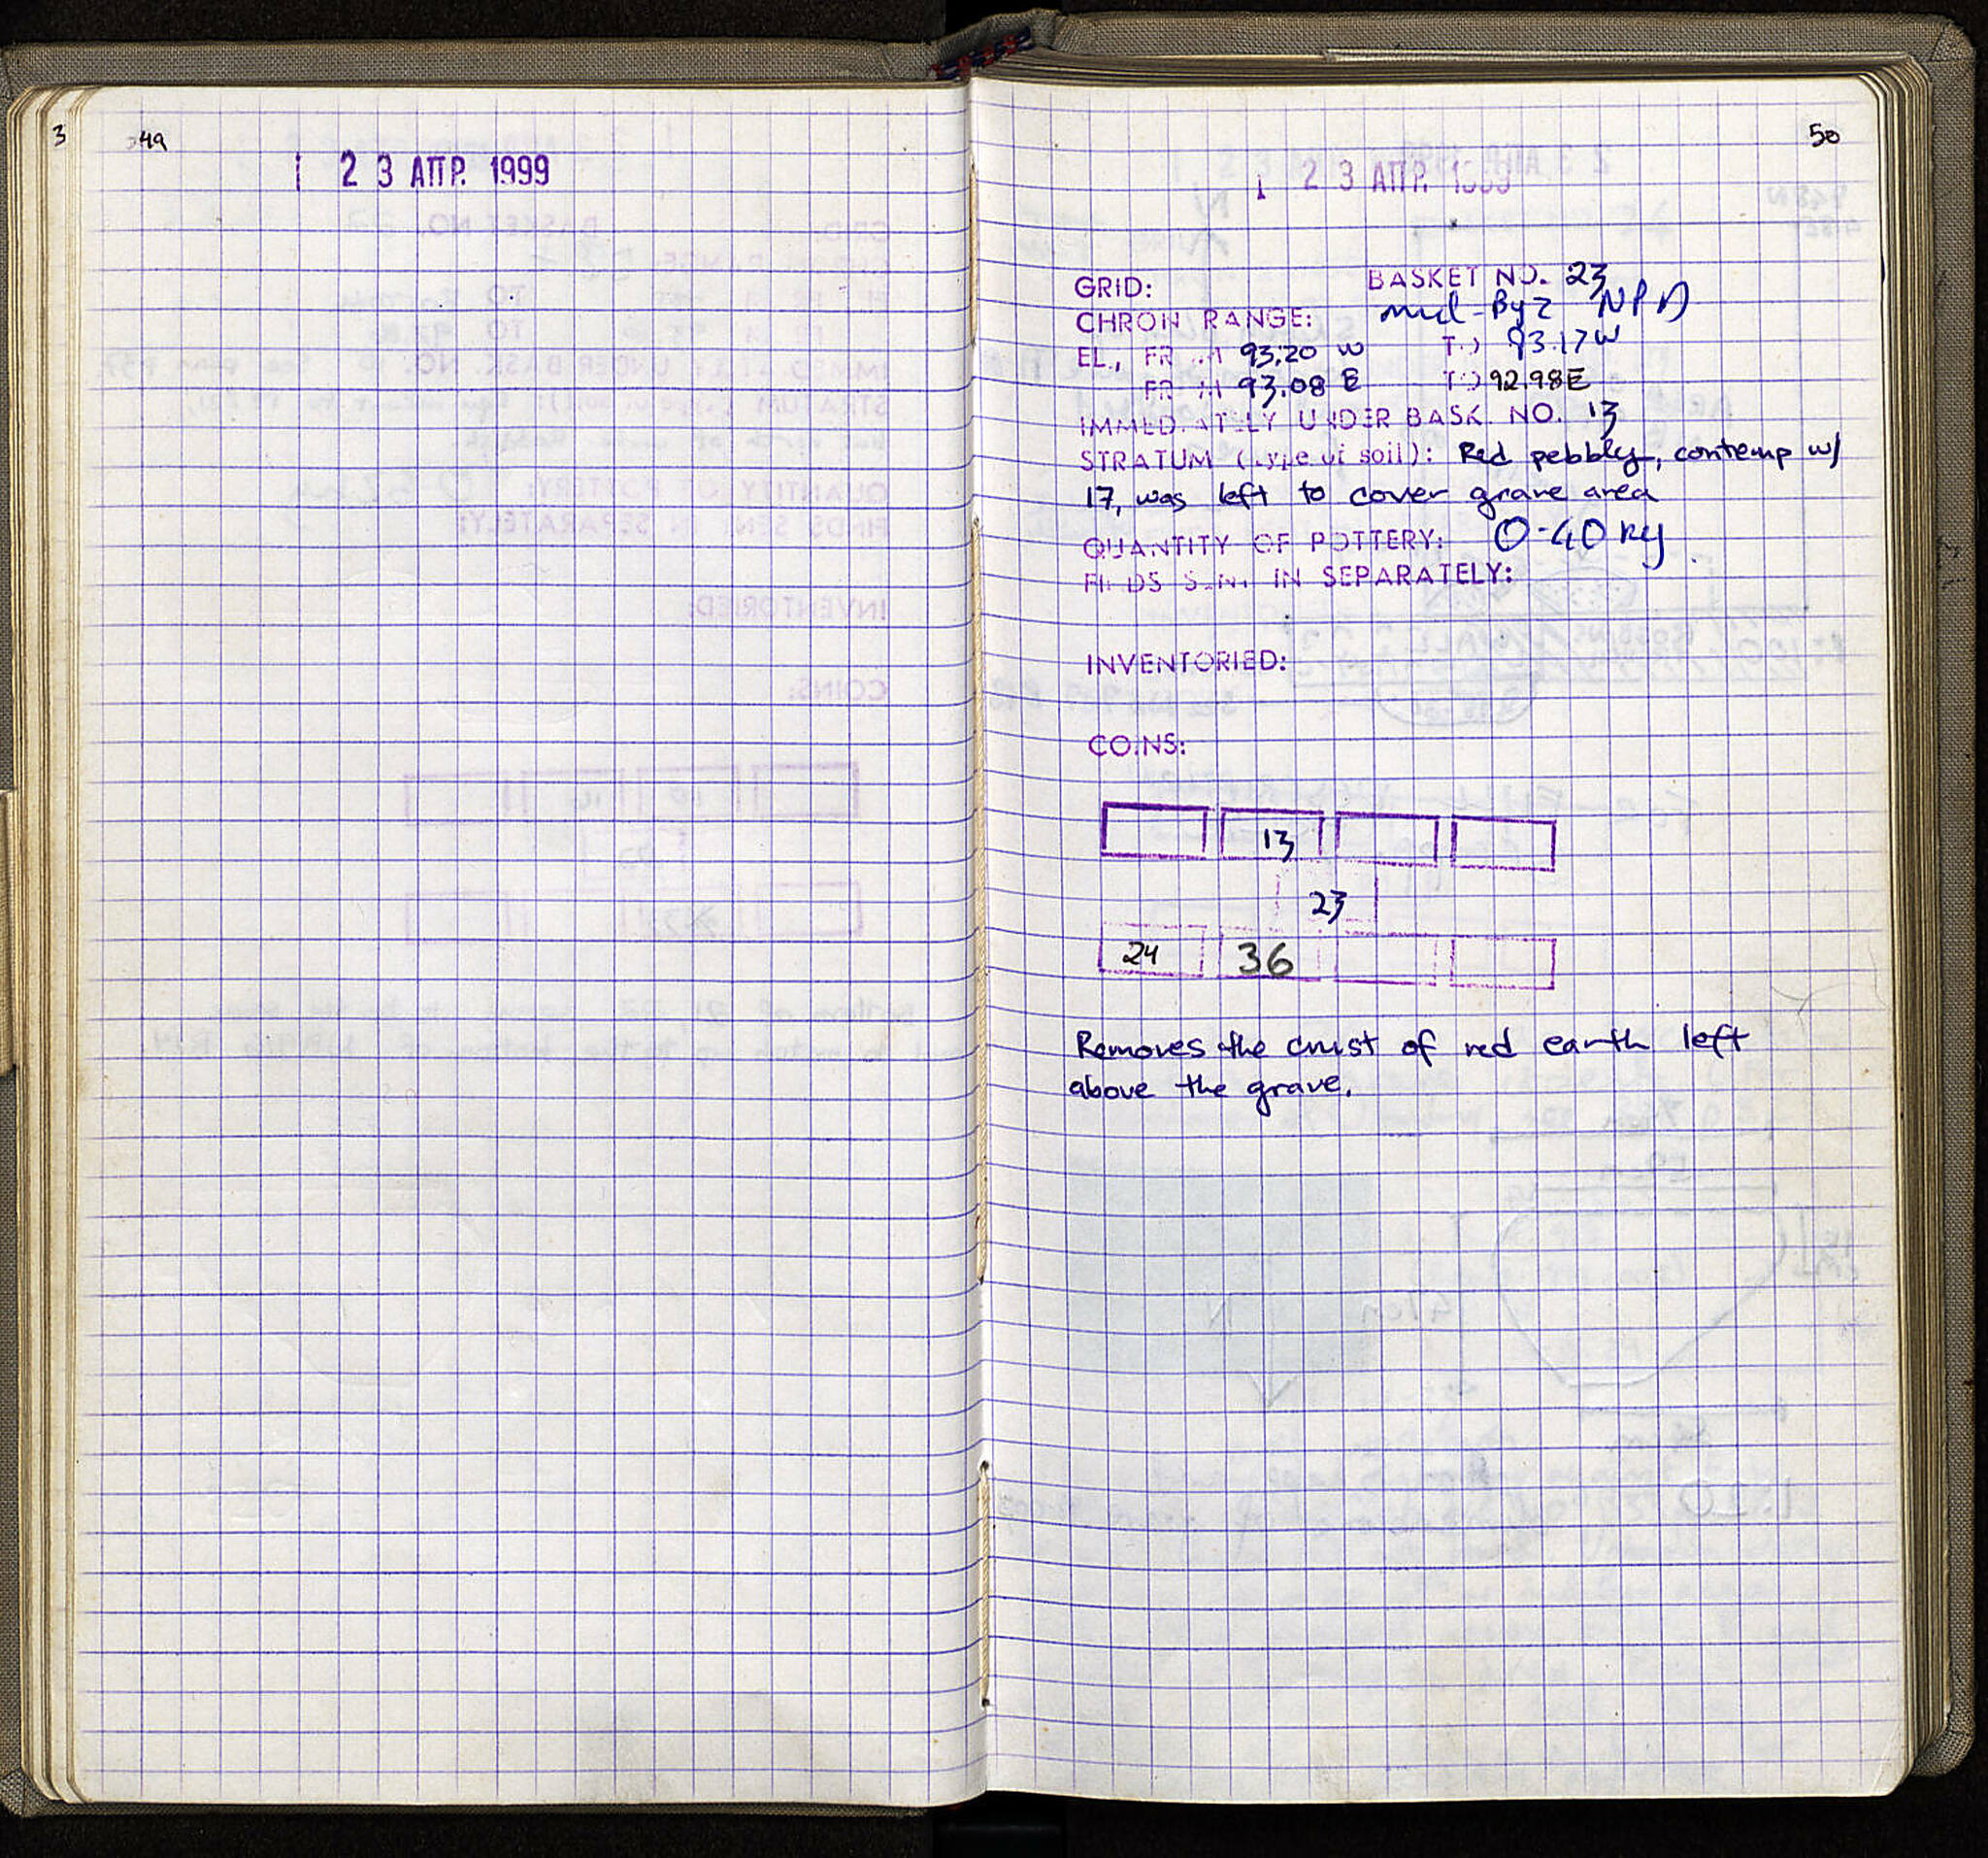 3
49
2 3 ΑΠΡ. 1999
50
2 3 ΑΠΡ. 1999
GRID: BASKET NO. 23
CHRON RANGE: mid-Byz NPD
EL., FROM 93.20 W TO 93.17 W
FROM 93.08 E TO 92.98 E
IMMEDIATELY UNDER BASK. NO. 13
STRATUM (type of soil): Red pebbly, contemp w/
17, was left to cover grave area
QUANTITY OF POTTERY: 0-40 kg
FINDS SENT IN SEPARATELY:
INVENTORIED:
COINS:
13
23
24 36
Removes the crust of red earth left
above the grave.